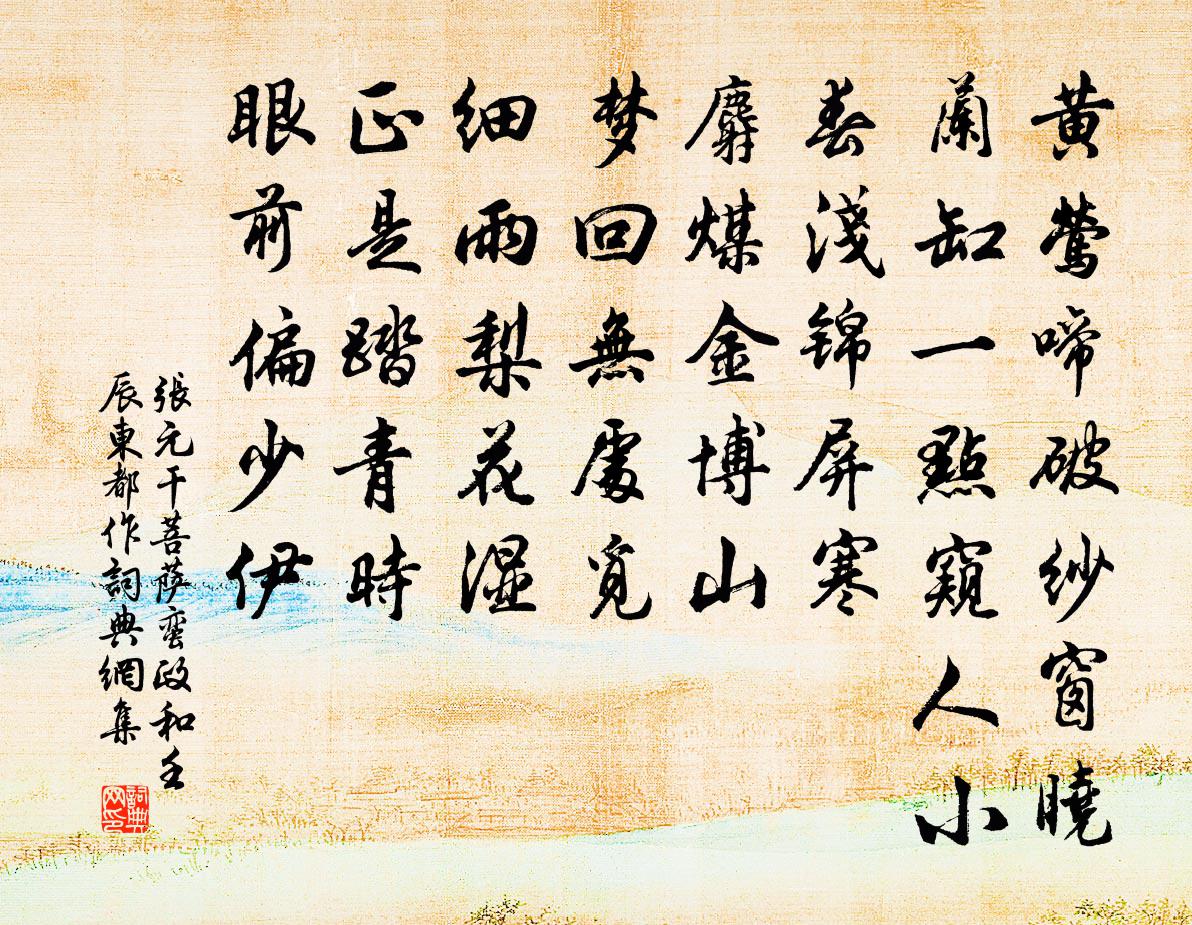 黄鶯啼破紗窗曉
蘭缸一點窺人小
春淺锦屏寒
麝煤金博山
梦回無處覓
細雨梨花濕
正是踏青時
眼前偏少伊
張元干菩薩蠻政和壬
辰東都作詞典網集
詞典网印